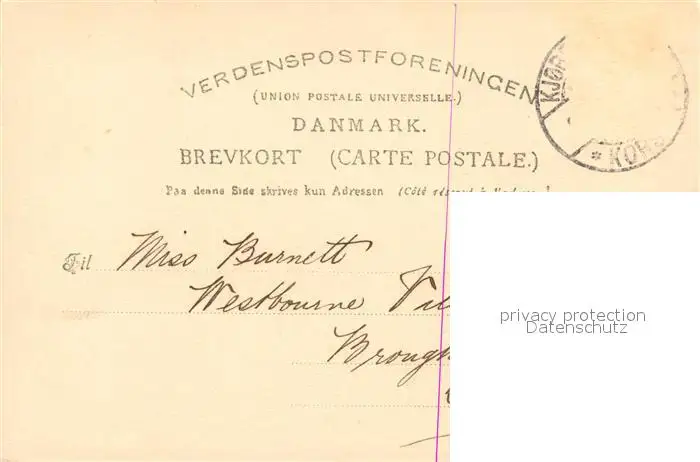 VERDENSPOSTFORENINGEN
(UNION POSTALE UNIVERSELLE.)
DANMARK.
BREVKORT (CARTE POSTALE.)
Paa denne Side skrives kun Adressen (Côté
KJØB
* KORS
Til Miss Burnett
Westbourne
privacy protection
Datenschutz